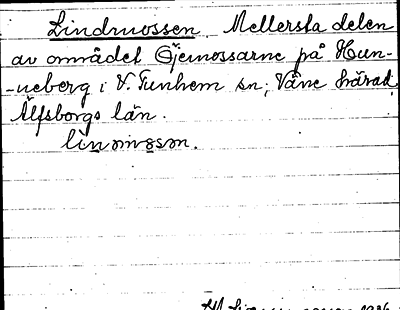 Lindmossen Mellersta delen
av området Öjemossarne på Hun-
-neberg i V. Tunhem sn, Väne härad,
Älfsborgs län.
linmåsən.